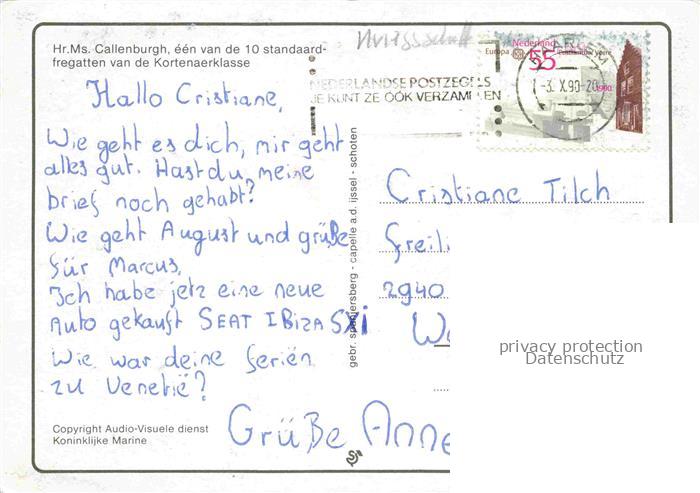 Hr.Ms. Callenburgh, één van de 10 standaard-
fregatten van de Kortenaerklasse
Hallo Cristiane,
Wie geht es dich, mir geht
alles gut. Hast du meine
brief noch gehabt?
Wie geht August und grüße
für Marcus,
Ich habe jetz eine neue
Auto gekauft SEAT IBIZA SXi
Wie war deine ferien
zu Venetië?
Grüße Anne
Copyright Audio-Visuele dienst
Koninklijke Marine
gebr. spanjersberg - capelle a.d. ijssel - schoten
NEDERLANDSE POSTZEGELS
JE KUNT ZE OOK VERZAMELEN
Nederland
Europa
55
-3. X.90-20
Cristiane Tilch
Freili
2940
privacy protection
Datenschutz